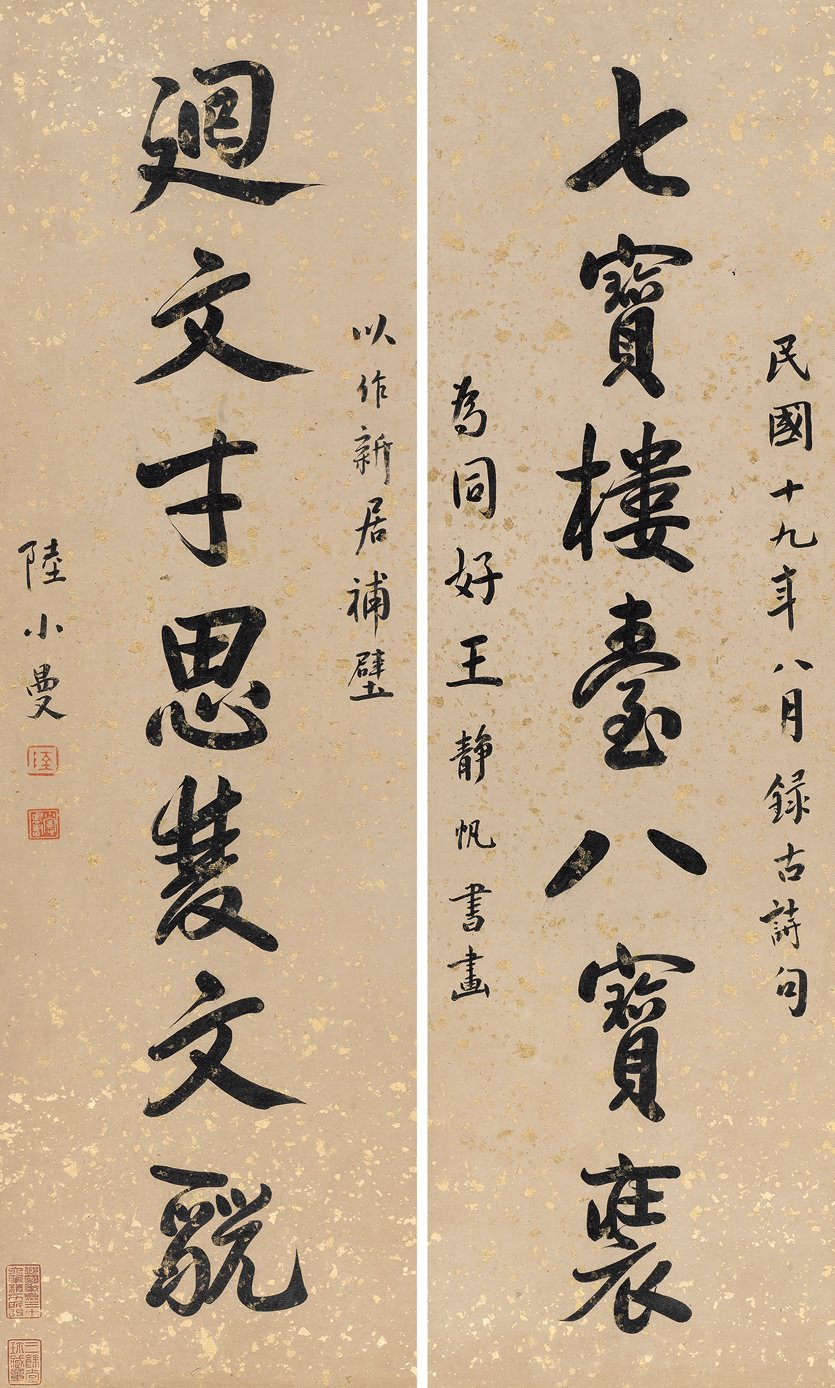 民國十九年八月録古詩句
七寶樓臺八寶裝
為同好王靜帆書畫
以作新居補壁
廻文才思雙文貌
陸小曼